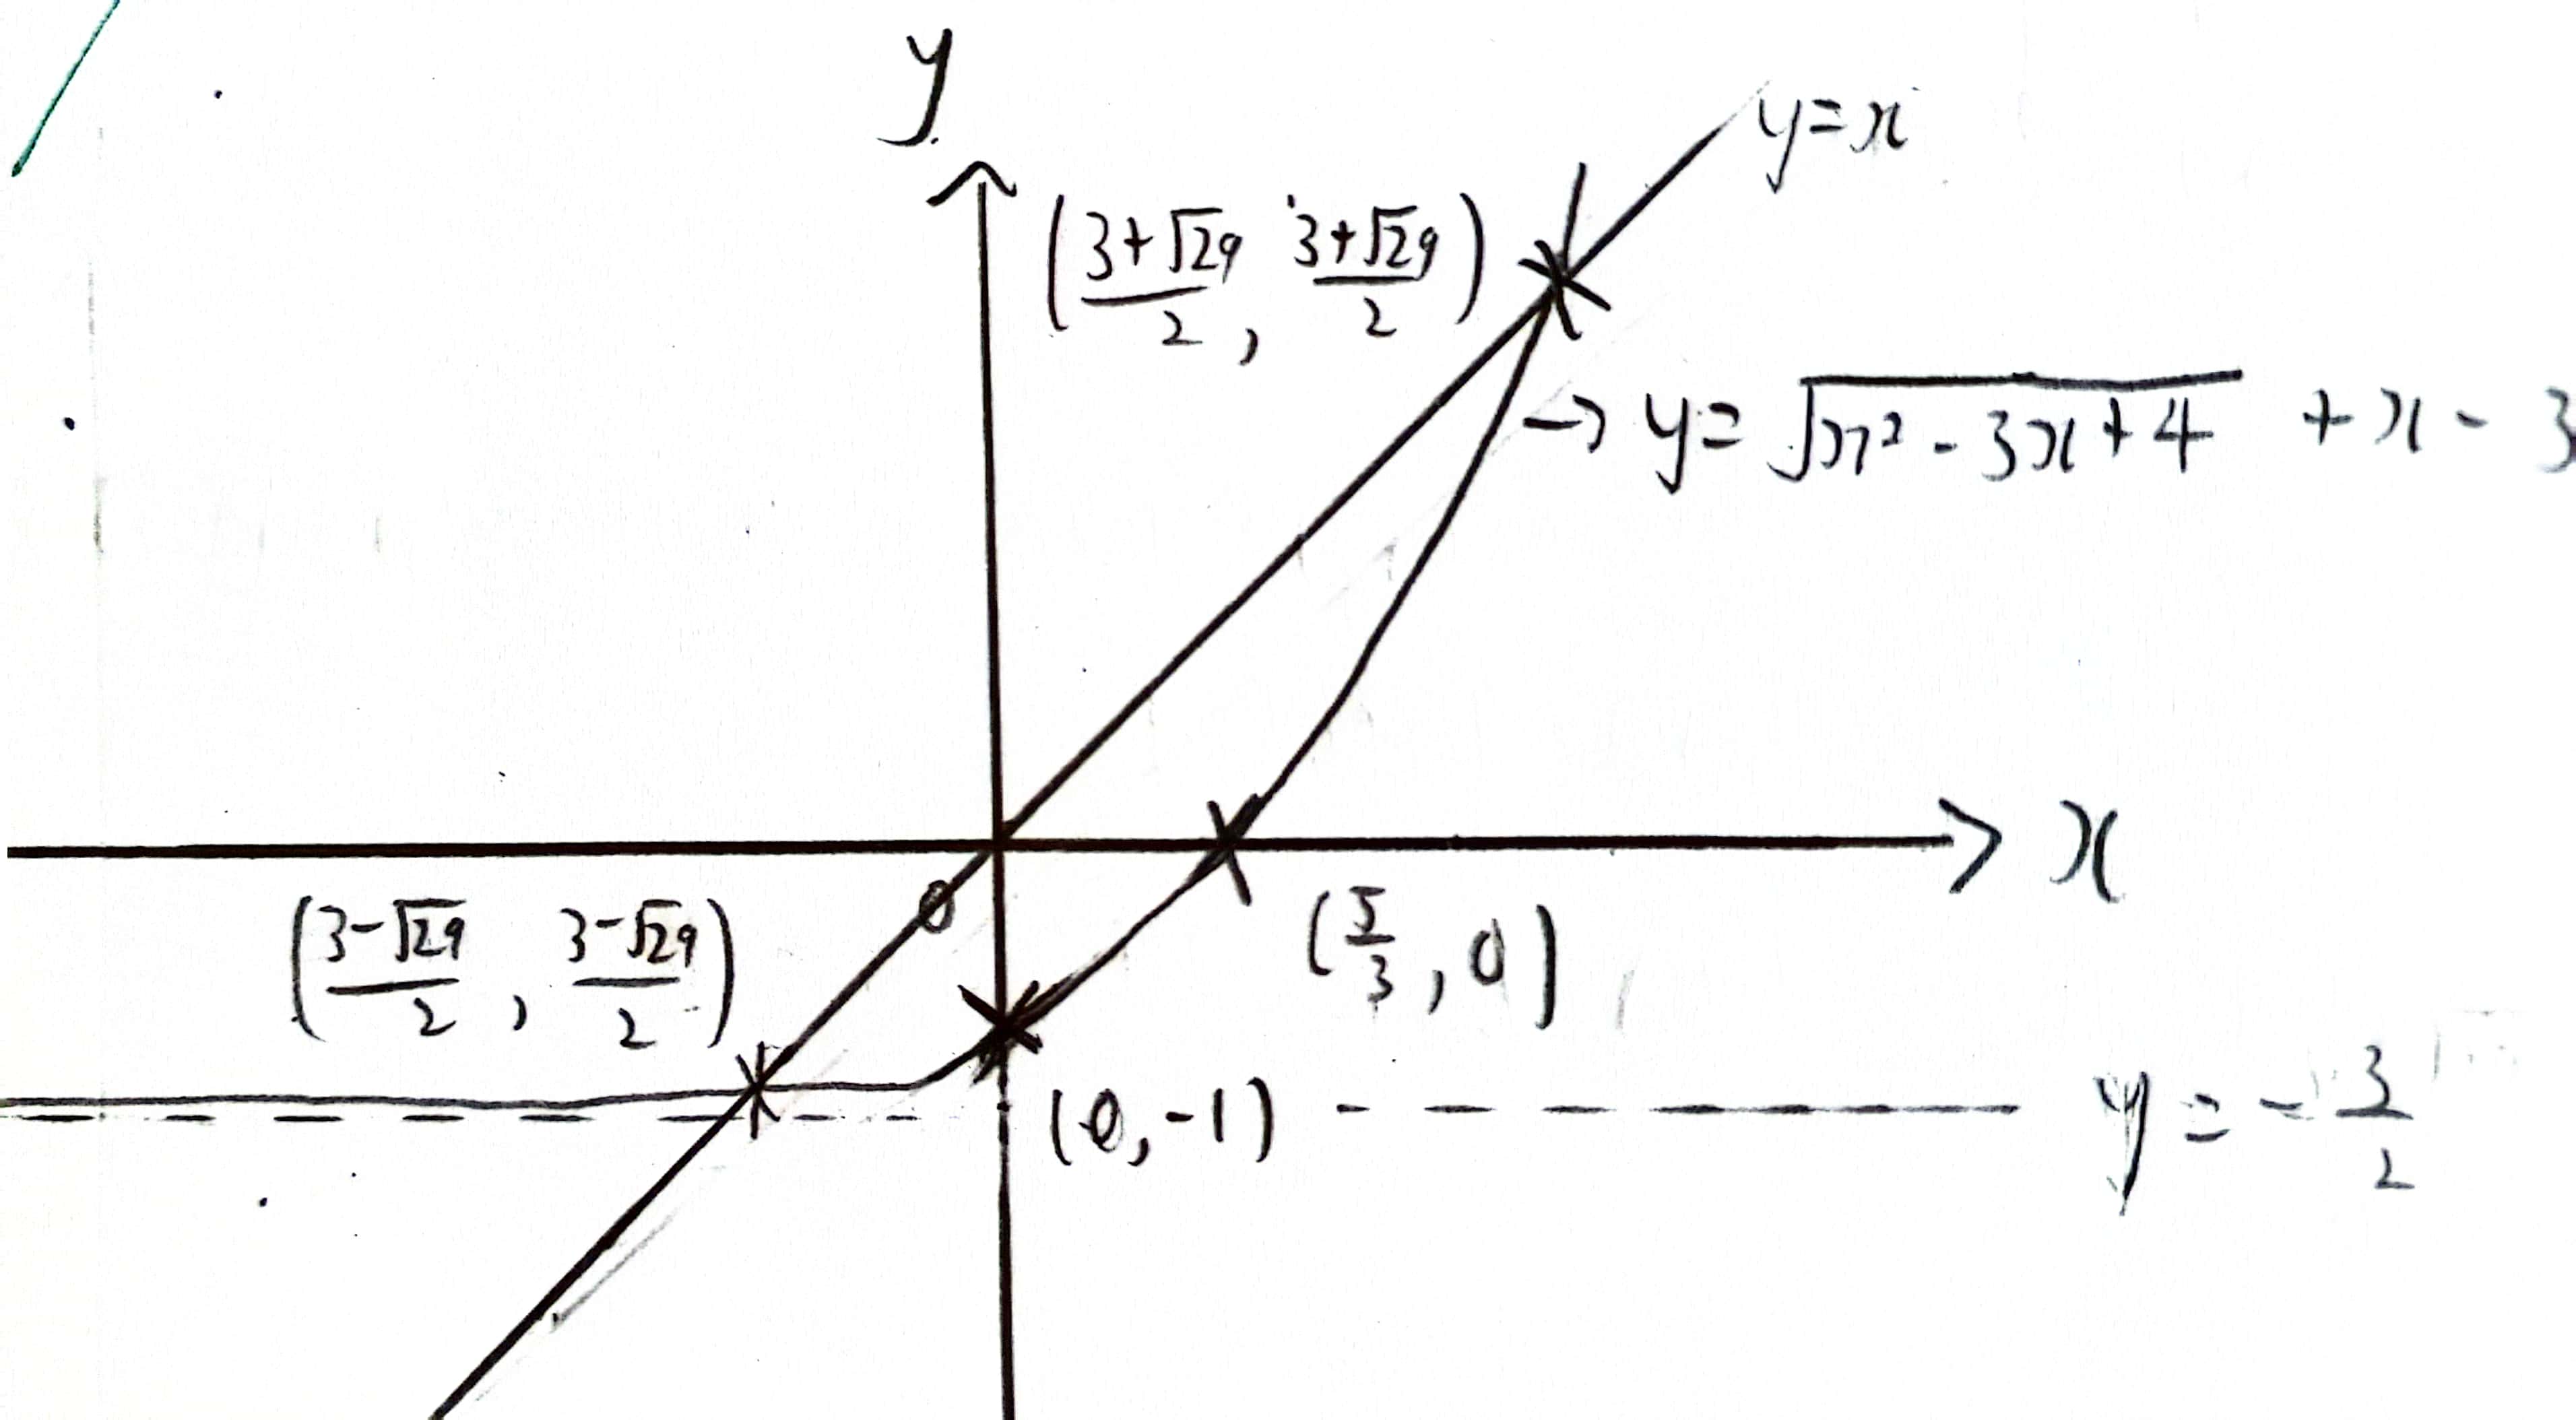 y
y=x
(3+√29/2, 3+√29/2)
→ y=√x²-3x+4 + x - 3
x
0
(3-√29/2, 3-√29/2)
(5/3, 0)
(0,-1)
y = -3/2